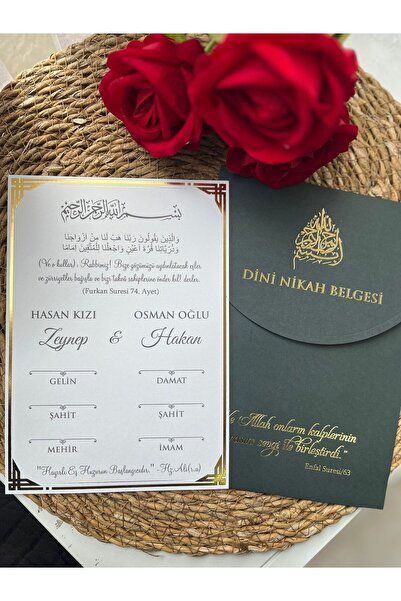 بسم الله الرحمن الرحيم
وَالَّذِينَ يَقُولُونَ رَبَّنَا هَبْ لَنَا مِنْ أَزْوَاجِنَا
وَذُرِّيَّاتِنَا قُرَّةَ أَعْيُنٍ وَاجْعَلْنَا لِلْمُتَّقِينَ إِمَامًا
(Ve o kullar), Rabbimiz! Bize gözümüzü aydınlatacak eşler
ve zürriyetler bağışla ve bizi takvâ sahiplerine önder kıl! derler.
(Furkan Suresi 74. Ayet)
HASAN KIZI
Zeynep
&
OSMAN OĞLU
Hakan
GELİN
DAMAT
ŞAHİT
ŞAHİT
MEHİR
İMAM
"Hayırlı Eş Huzurun Başlangıcıdır." -Hz.Ali(r.a)
DİNİ NİKAH BELGESİ
Ve "Allah onların kalplerinin
sevgi ile birleştirdi."
Enfal Suresi/63